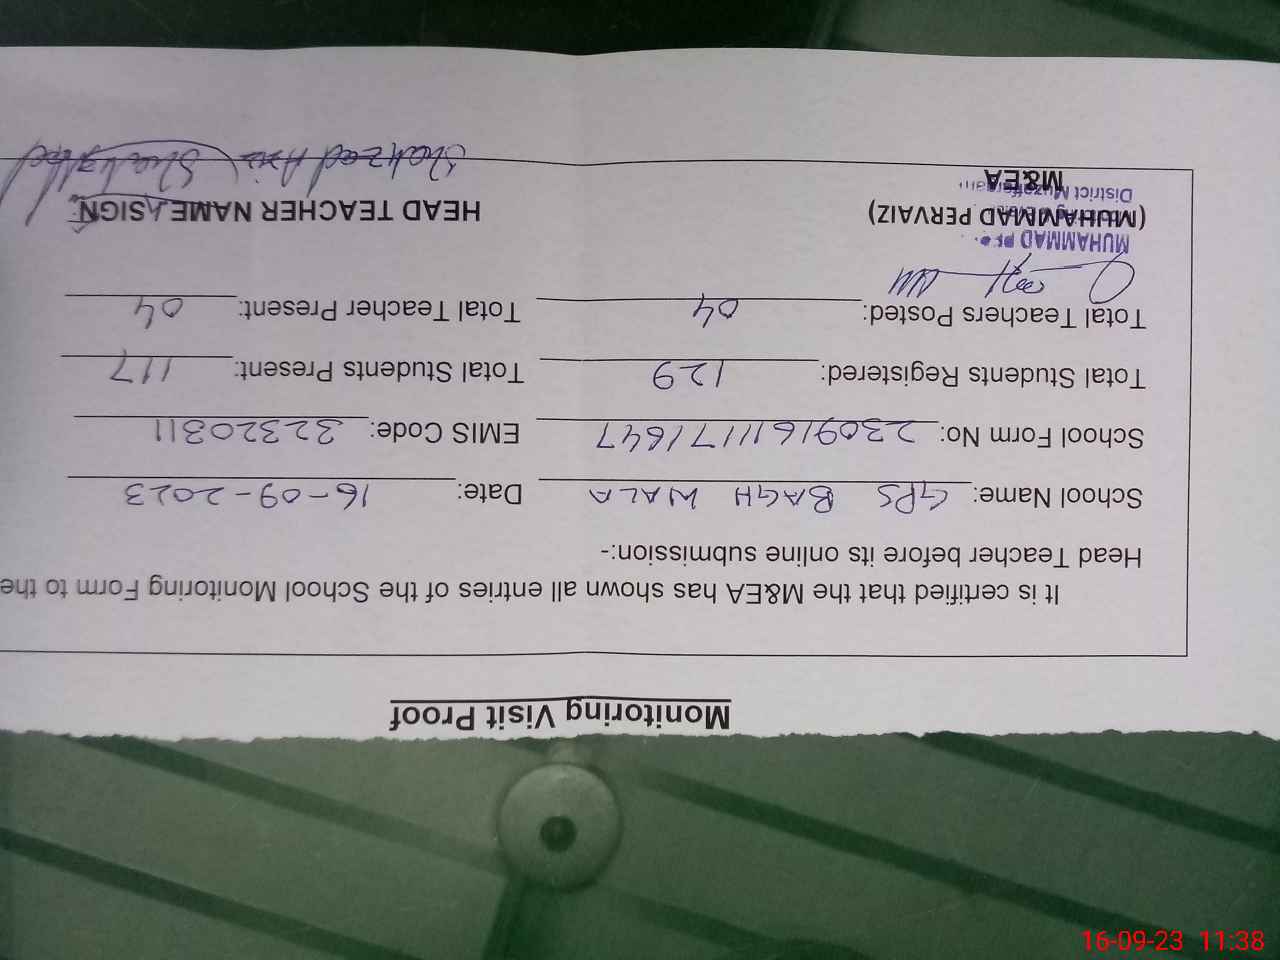 Monitoring Visit Proof
It is certified that the M&EA has shown all entries of the School Monitoring Form to the
Head Teacher before its online submission:-
School Name: GPS BAGH WALA Date: 16-09-2023
School Form No: 230916111771647 EMIS Code: 32320311
Total Students Registered: 129 Total Students Present: 117
Total Teachers Posted: 04 Total Teacher Present: 04
MUHAMMAD
(MUHAMMAD PERVAIZ) HEAD TEACHER NAME / SIGN
District Muzaffargarh
M&EA
Shahzad Aziz
16-09-23 11:38